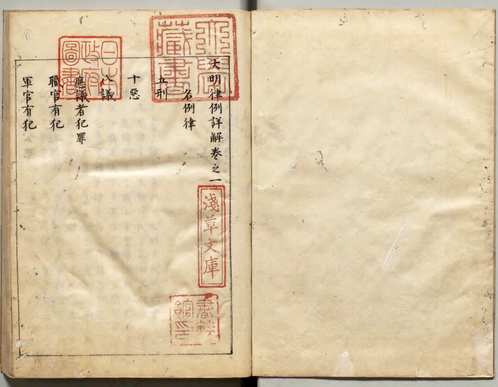 大明律例詳解卷之一
名例律
五刑
十惡
八議
應議者犯罪
職官有犯
軍官有犯
淺草文庫
日本
政府
圖書